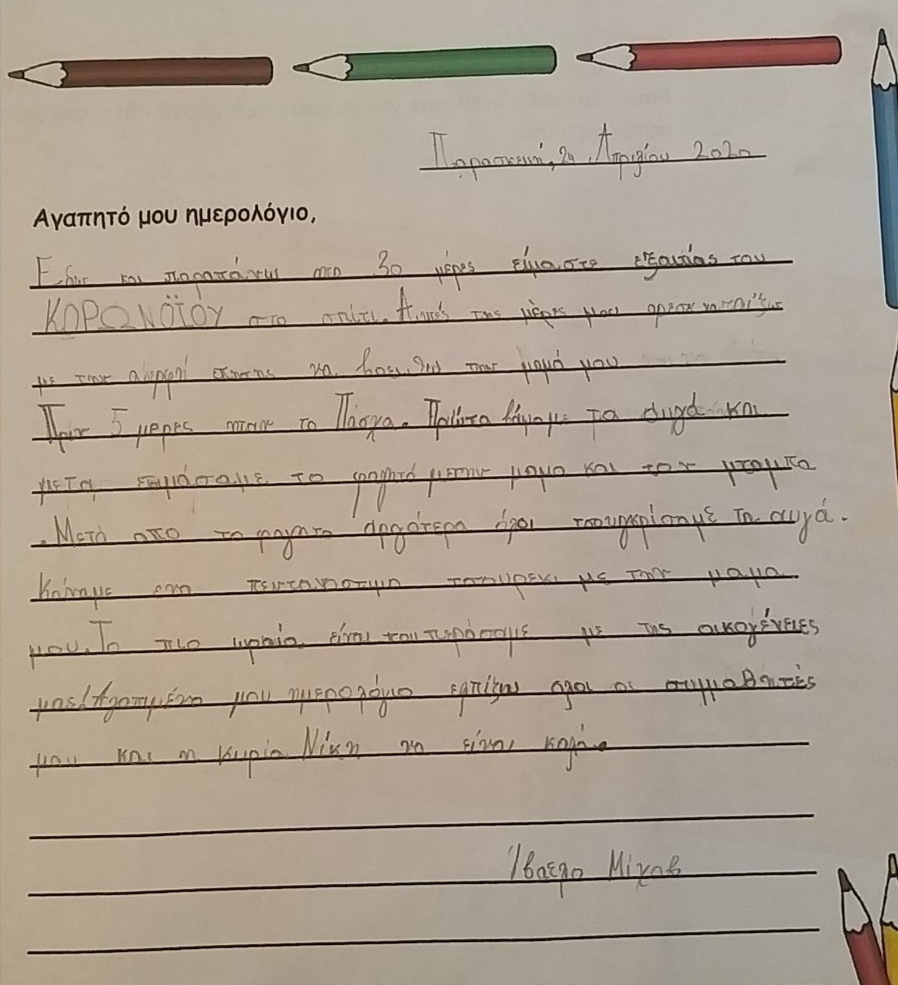 Παρασκευή, 24 Απριλίου 2020
Αγαπητό μου ημερολόγιο,
Εδω και παραπάνω απο 30 μέρες είμαστε εξαιτίας του
ΚΟΡΩΝΟΪΟΥ στο σπίτι. Αυτές της μέρες μου αρέσει να παίζω
με την αδερφή επισης να βοειθώ την μαμά μου
Πριν 5 μερες ηταν το Πάσχα. Πρώτα βάψαμε τα αυγά και
μετα, ετιμάσαμε το φαγητό με την μαμα και τον μπαμπα
. Μετά απο το φαγητο αργότερα όλοι τσουγκρίσαμε τα αυγά.
Κάναμε ενα πεντανοστιμο τσουρεκι με την μαμα
μου. Το πιο ωραίο είναι που περάσαμε με της οικογένειες
μας! Αγαπημένο μου ημερολόγιο ελπίζω ολοι οι συμμαθητές
μου και η κυρία Νίκη να είναι καλά.
Μίχαβ